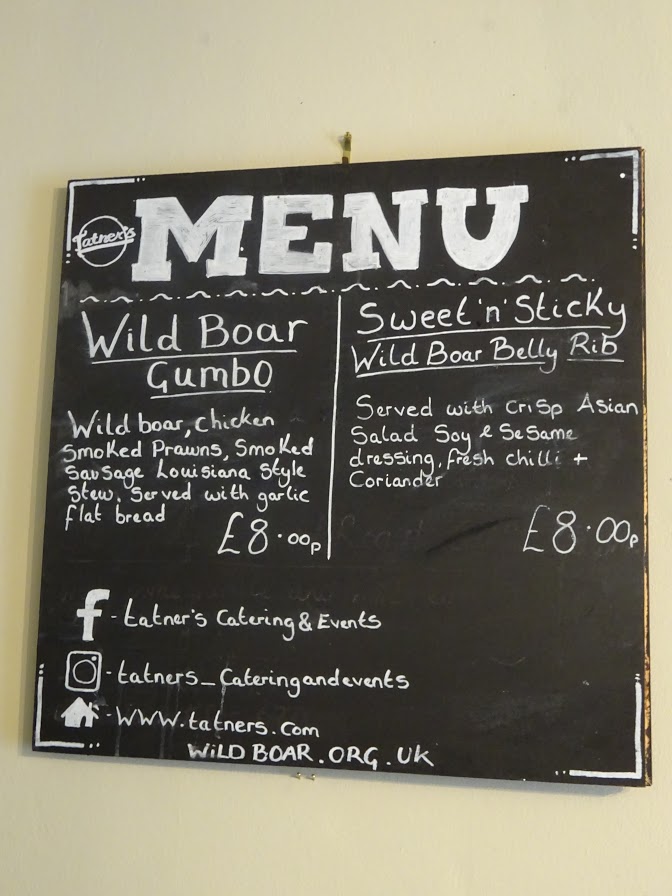 tatner's
MENU
Wild Boar
Gumbo
Wild boar, chicken
Smoked Prawns, Smoked
Sausage Louisiana Style
Stew. Served with garlic
flat bread
£8.00p
Sweet 'n' Sticky
Wild Boar Belly Rib
Served with crisp Asian
Salad Soy & Sesame
dressing, fresh chilli +
Coriander
£8.00p
f - tatner's Catering & Events
- tatners_Cateringandevents
- WWW.tatners.com
WILD BOAR.ORG.UK